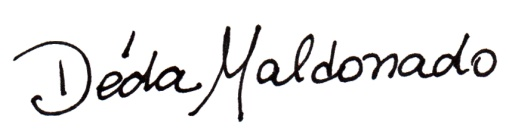 Déda Maldonado